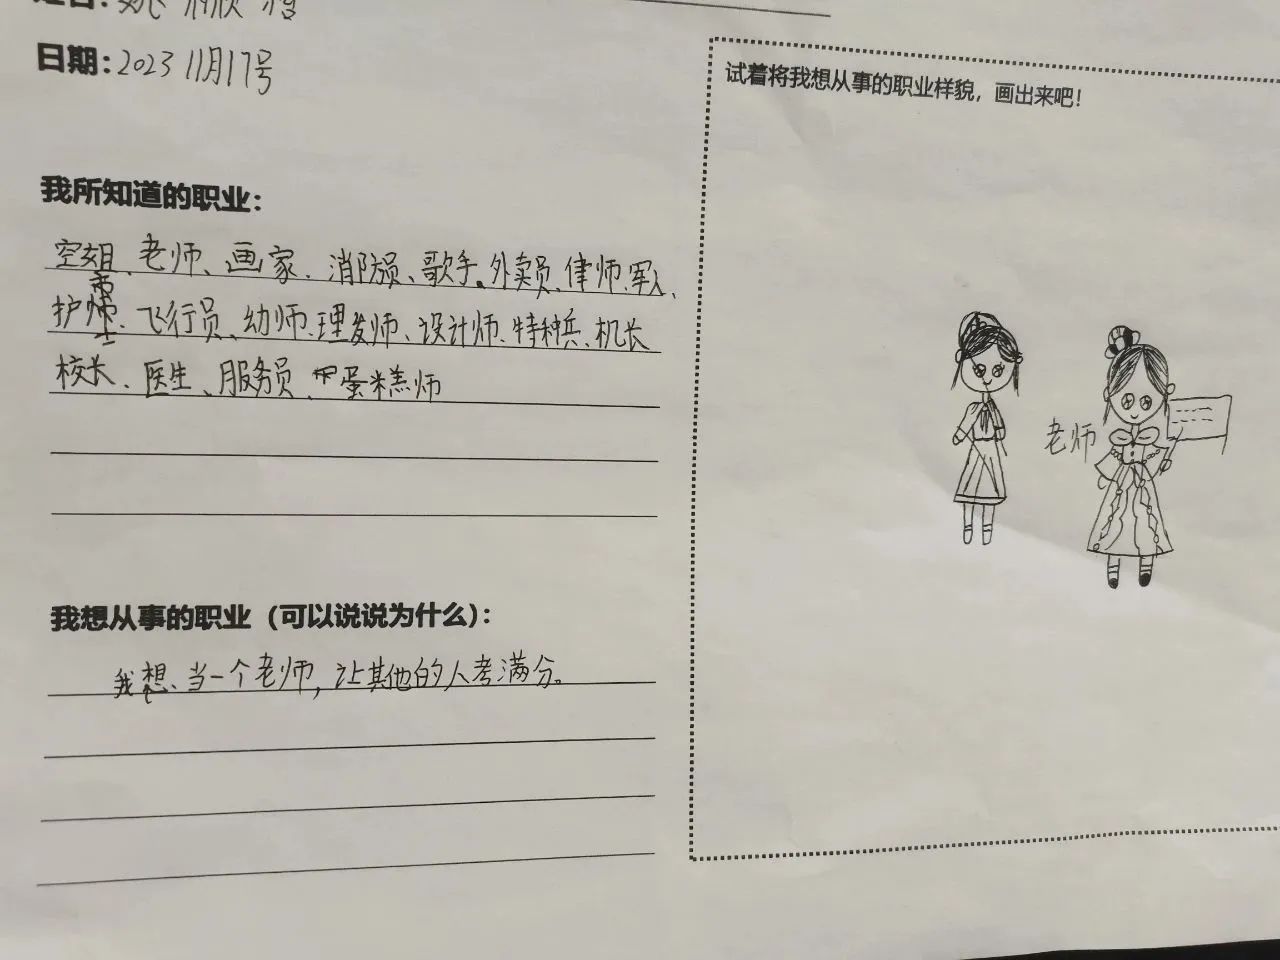 日期：2023 11月17号
试着将我想从事的职业样貌，画出来吧！
我所知道的职业：
空姐、老师、画家、消防员、歌手、外卖员、律师、军人、
护士、飞行员、幼师、理发师、设计师、特种兵、机长
校长、医生、服务员、蛋糕师
老师
我想从事的职业（可以说说为什么）：
我想当一个老师，让其他的人考满分。